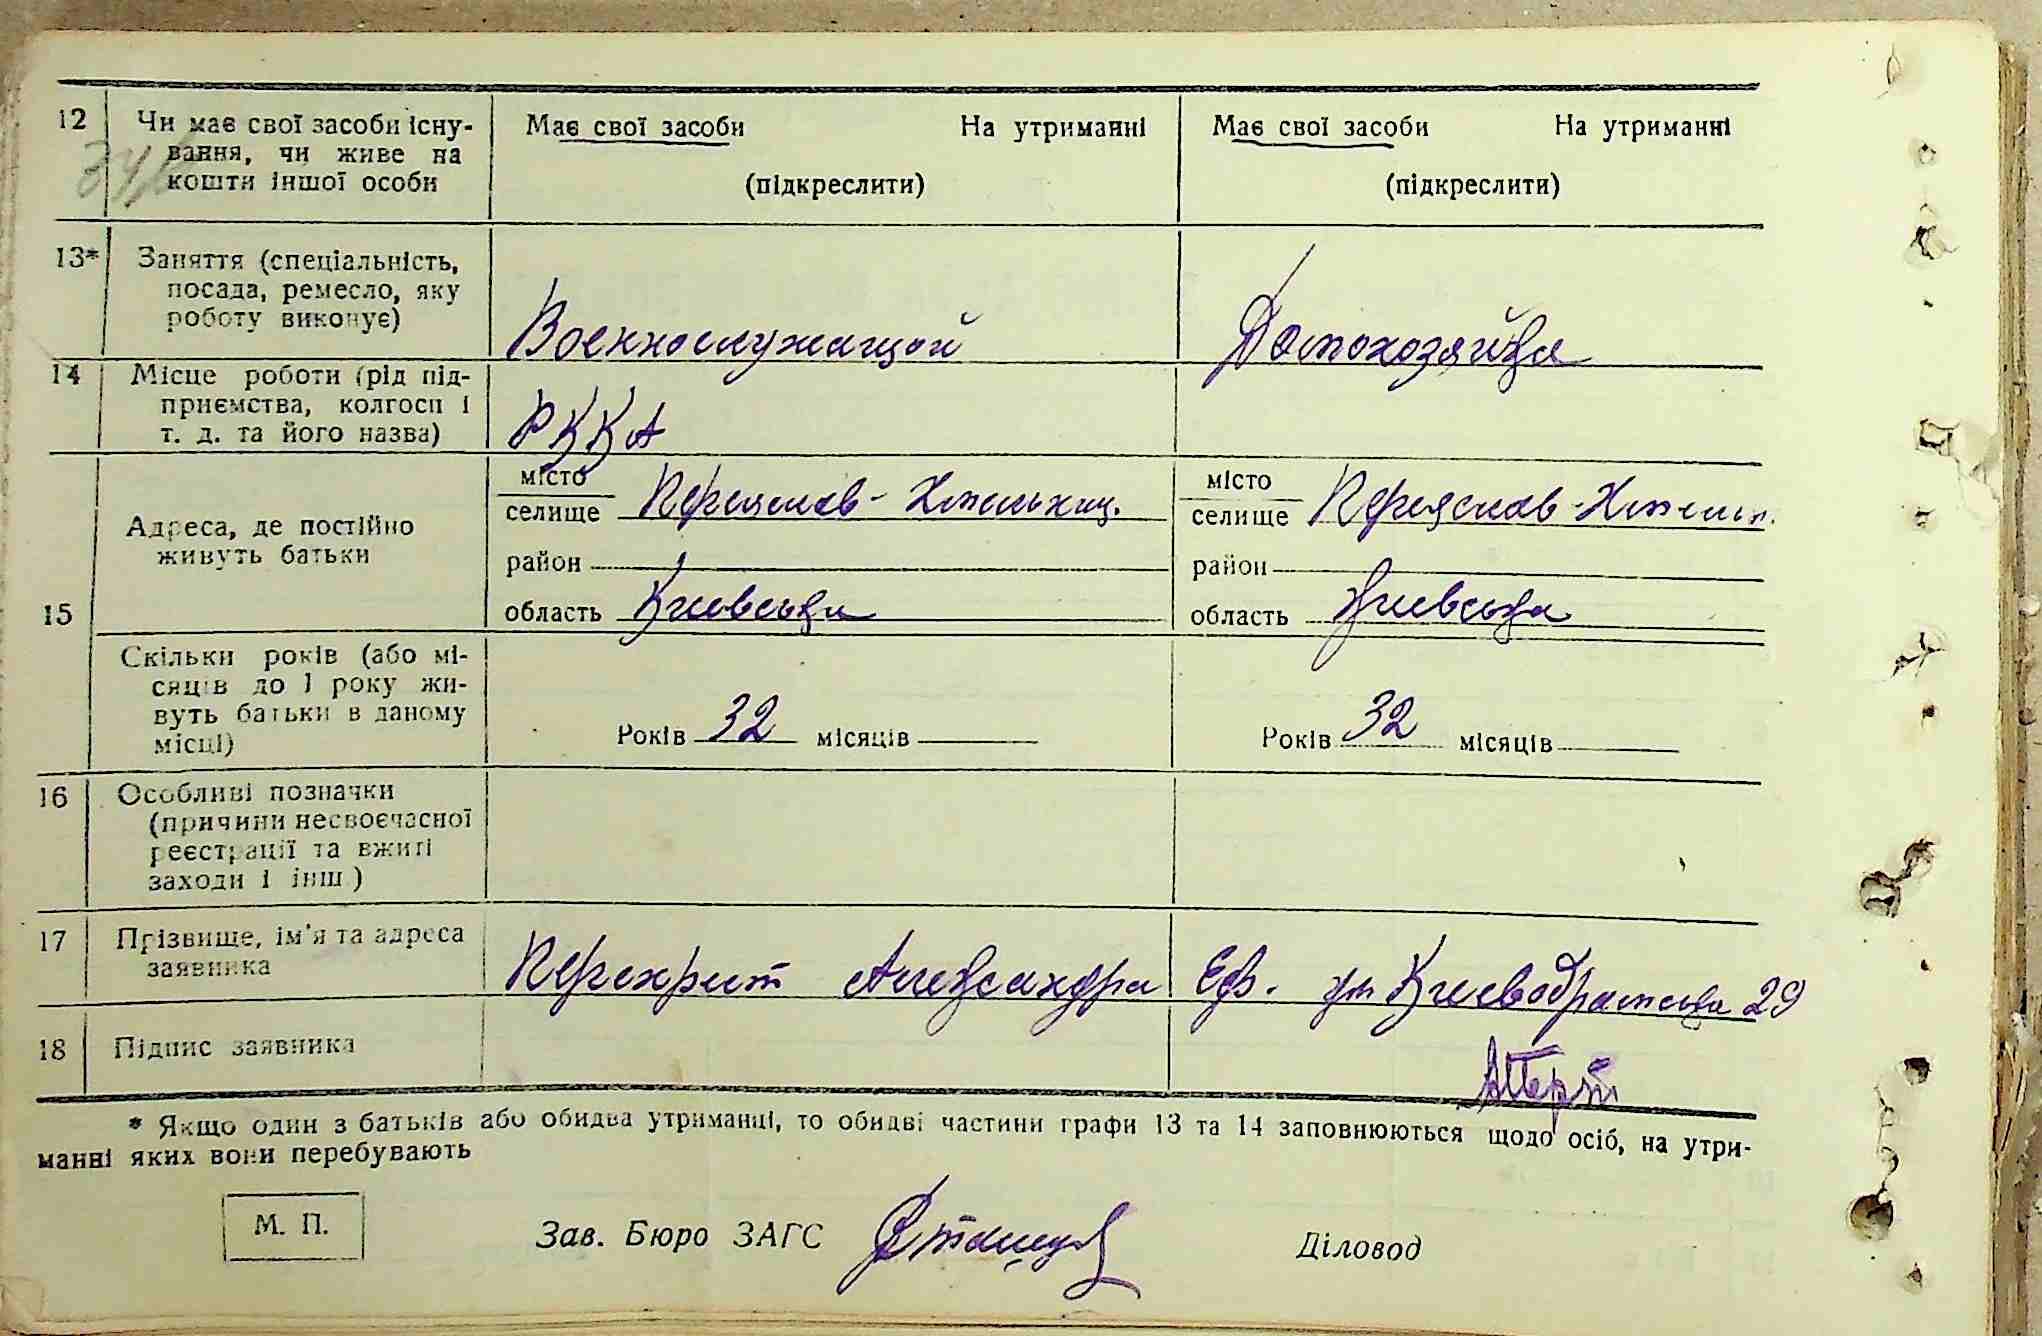 12 Чи має свої засоби існу- Має свої засоби На утриманні Має свої засоби На утриманні
вання, чи живе на
кошти іншої особи (підкреслити) (підкреслити)
13* Заняття (спеціальність,
посада, ремесло, яку
роботу виконує) Военнослужащой Домохозяйка
14 Місце роботи (рід під-
приємства, колгосп і
т. д. та його назва) РККА
15 Адреса, де постійно
живуть батьки
місто
селище Переяслав-Хмельниц. місто
селище Переяслав-Хмельн.
район район
область Киевська область Киевська
Скільки років (або мі-
сяців до 1 року жи-
вуть батьки в даному
місці) Років 32 місяців Років 32 місяців
16 Особливі позначки
(причини несвоєчасної
реєстрації та вжиті
заходи і інш)
17 Прізвище, ім'я та адреса
заявника Перехрист Александра Еф. ул Киевобратська 29
18 Підпис заявника
* Якщо один з батьків або обидва утриманці, то обидві частини графи 13 та 14 заповнюються щодо осіб, на утри-
манні яких вони перебувають
М. П. Зав. Бюро ЗАГС Діловод